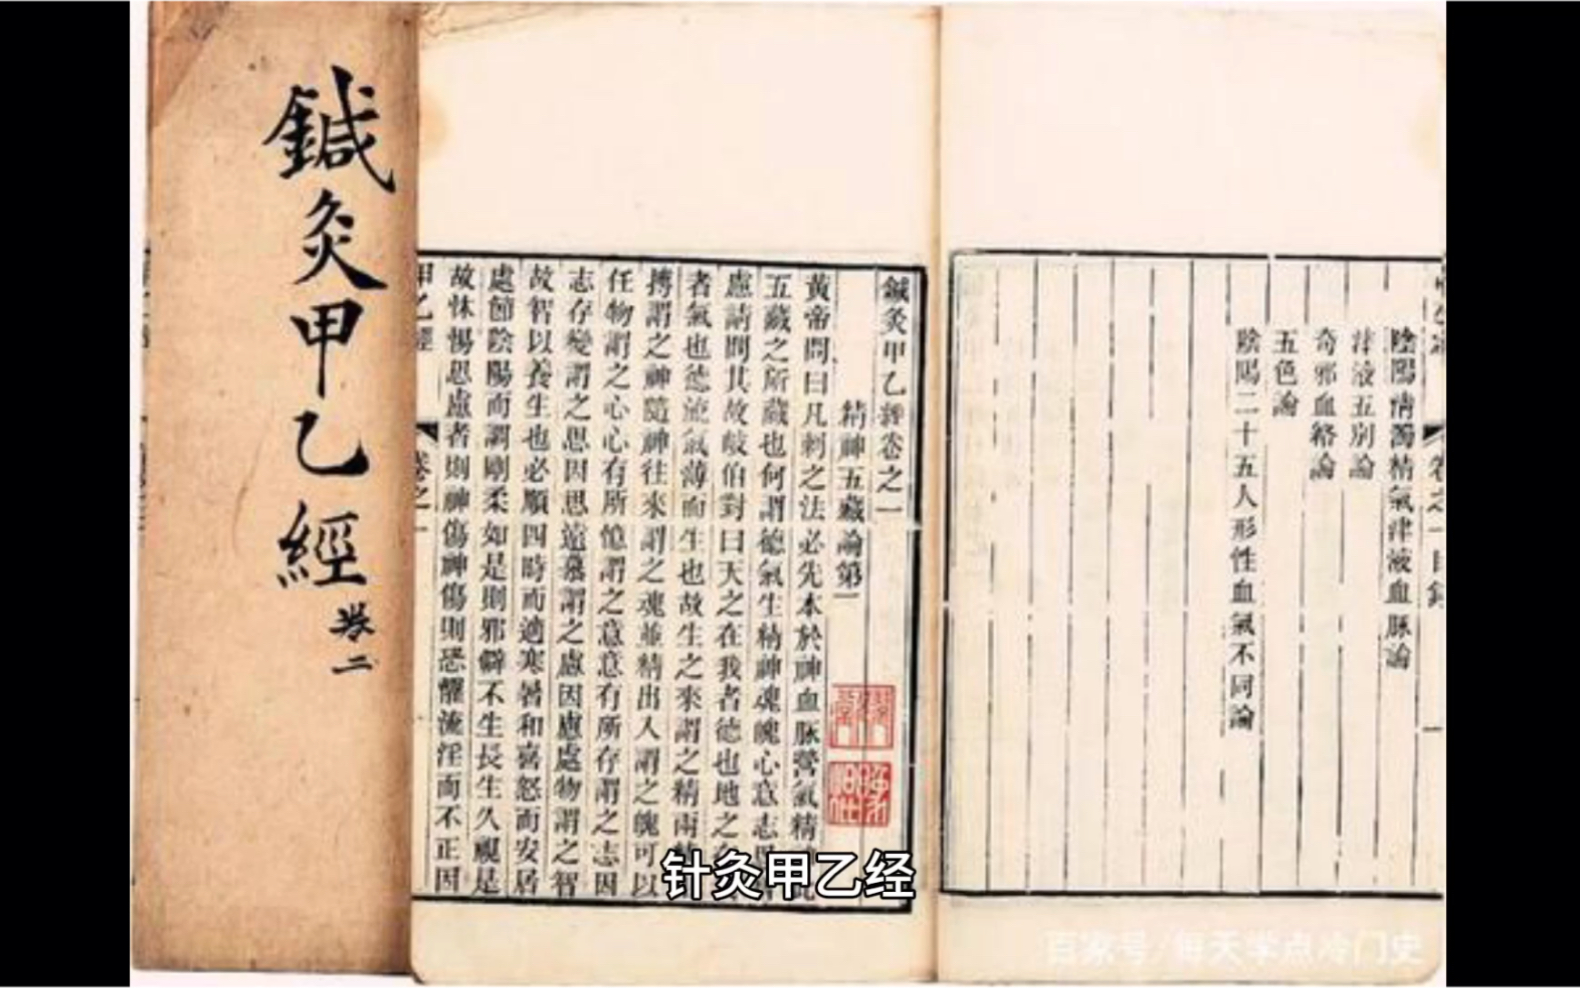 鍼灸甲乙經
卷二
陰陽清濁精氣津液血脉論
津液五別論
奇邪血絡論
五色論
陰陽二十五人形性血氣不同論
鍼灸甲乙經卷之一
精神五藏論第一
黃帝問曰凡刺之法必先本於神血脉營氣精
五藏之所藏也何謂德氣生精神魂魄心意志思
慮請問其故岐伯對曰天之在我者德也地之在
者氣也德流氣薄而生也故生之來謂之精兩
搏謂之神隨神往來謂之魂並精出入謂之魄可以
任物謂之心心有所憶謂之意意有所存謂之志因
志存變謂之思因思遠慕謂之慮因慮處物謂之智
故智以養生也必順四時而適寒暑和喜怒而安居
處節陰陽而調剛柔如是則邪僻不生長生久視是
故怵惕思慮者則神傷神傷則恐懼流淫而不正因
甲乙經 卷之一
针灸甲乙经
百家号/每天学点冷门史